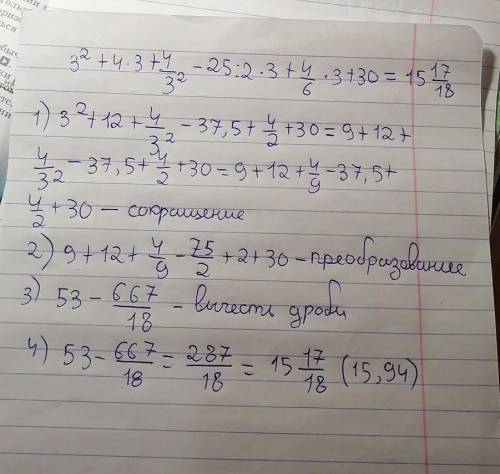 3² + 4·3 + 4/3² − 25:2·3 + 4/6·3 + 30 = 15 17/18
1) 3² + 12 + 4/3² − 37,5 + 4/2 + 30 = 9 + 12 +
4/3² − 37,5 + 4/2 + 30 = 9 + 12 + 4/9 − 37,5 +
4/2 + 30 — сокращение
2) 9 + 12 + 4/9 − 75/2 + 2 + 30 – преобразование
3) 53 − 667/18 – вычесть дроби
4) 53 − 667/18 = 287/18 = 15 17/18 (15,94)